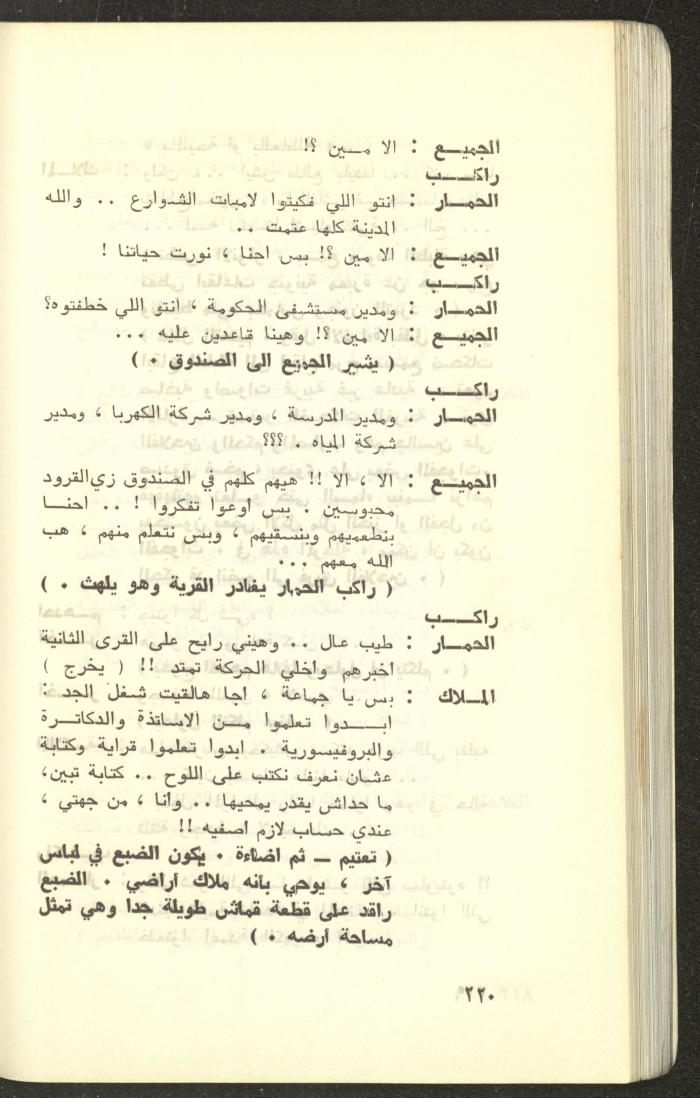 الجميـــع : الا مــين ؟!
راكـــــب
الحمـــار : انتو اللي فكيتوا لامبات الشوارع .. والله
المدينة كلها عتمت ..
الجميـــع : الا مين ؟! بس احنا ، نورت حياتنا !
راكـــــب
الحمـــار : ومدير مستشفى الحكومة ، انتو اللي خطفتوه؟
الجميـــع : الا مين ؟! وهينا قاعدين عليه ...
( يشير الجميع الى الصندوق . )
راكـــــب
الحمـــار : ومدير المدرسة ، ومدير شركة الكهربا ، ومدير
شركة المياه . ؟؟؟
الجميـــع : الا ، الا !! هيهم كلهم في الصندوق زي القرود
محبوسين . بس أوعوا تفكروا ! .. احنــا
بنطعميهم وبنسقيهم ، وبس نتعلم منهم ، هب
الله معهم ...
( راكب الحمار يغادر القرية وهو يلهث . )
راكـــــب
الحمـــار : طيب عال .. وهيني رايح على القرى الثانية
اخبرهم واخلي الحركة تمتد !! ( يخرج )
المــلاك : بس يا جماعة ، اجا هالقيت شغل الجد :
ابــــدوا تعلموا مــن الاساتذة والدكاتــرة
والبروفيسورية . ابدوا تعلموا قراية وكتابة
عشان نعرف نكتب على اللوح .. كتابة تبين،
ما حداش يقدر يمحيها .. وأنا ، من جهتي ،
عندي حساب لازم اصفيه !!
( تعتيم — ثم اضاءة . يكون الضبع في لباس
آخر ، يوحي بأنه ملاك أراضي . الضبع
راقد على قطعة قماش طويلة جدا وهي تمثل
مساحة أرضه . )
٢٢٠